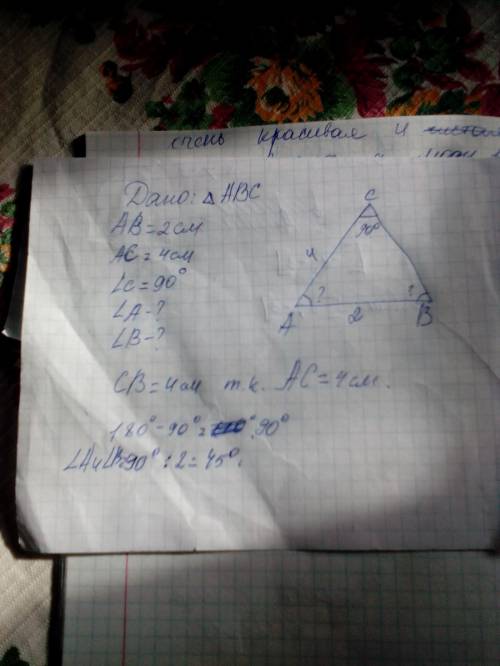 очень красивая и
Дано: △ ABC
AB = 2 см
AC = 4 см
∠C = 90°
∠A - ?
∠B - ?
C
90°
4
?
?
A
2
B
CB = 4 см т.к. AC = 4 см.
180° - 90° = 90°
∠A и ∠B = 90° : 2 = 45°.